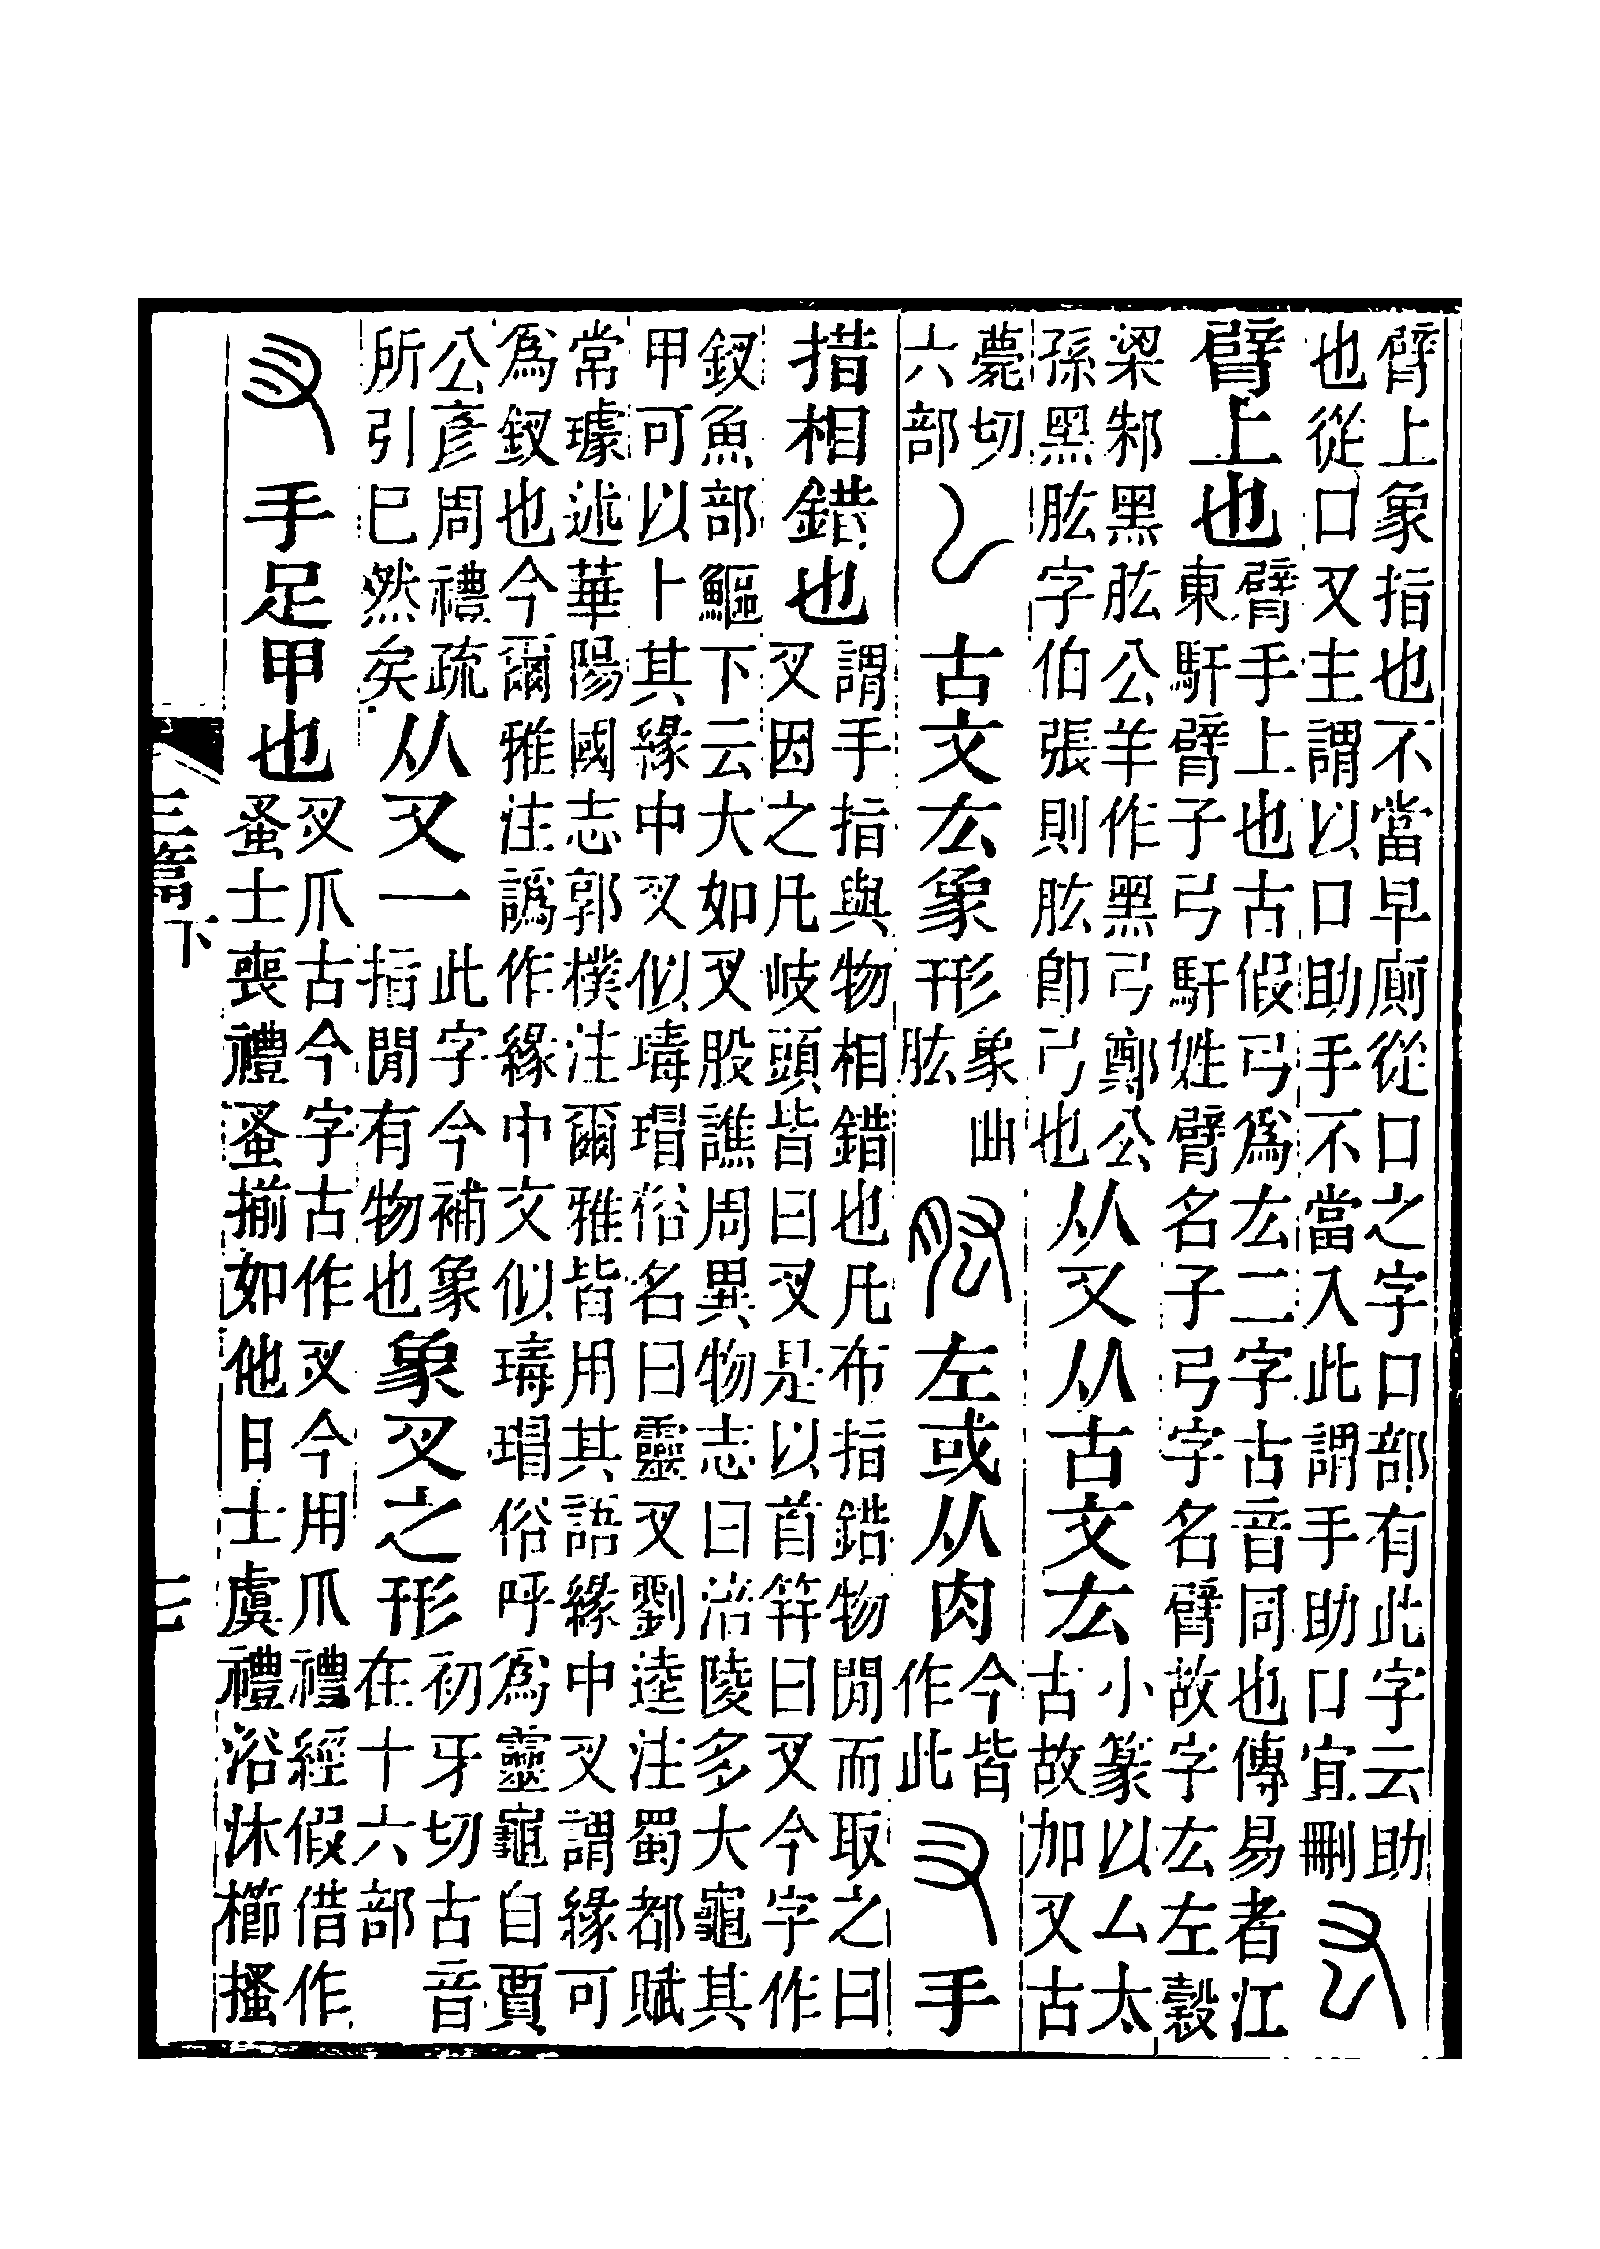 臂上象指也不當早廁從口之字口部有此字云助
也從口又主謂以口助手不當入此謂手助口宜刪
厷
臂上也
臂手上也古假弓爲厷二字古音同也傳易者江
東馯臂子弓馯姓臂名子弓字名臂故字厷左穀
梁邾黑肱公羊作黑弓鄭公
孫黑肱字伯張則肱卽弓也
从又从古文厷
小篆以厶太
古故加又古
薨切
六部
𠃋
古文厷象形
象曲
肱
肱
厷或从肉
今皆
作此
叉
手
措相錯也
謂手指與物相錯也凡布指錯物閒而取之曰
叉因之凡岐頭皆曰叉是以首筓曰叉今字作
釵魚部鰸下云大如叉股譙周異物志曰涪陵多大龜其
甲可以卜其緣中叉似瑇瑁俗名曰靈叉劉逵注蜀都賦
常璩述華陽國志郭樸注爾雅皆用其語緣中叉謂緣可
爲釵也今爾雅注譌作緣中文似瑇瑁俗呼爲靈龜自賈
公彥周禮疏
所引已然矣
从又一
此字今補象
指閒有物也
象叉之形
初牙切古音
在十六部
㕚
手足甲也
㕚爪古今字古作㕚今用爪禮經假借作
蚤士喪禮蚤揃如他日士虞禮浴沐櫛搔
三篇下
七